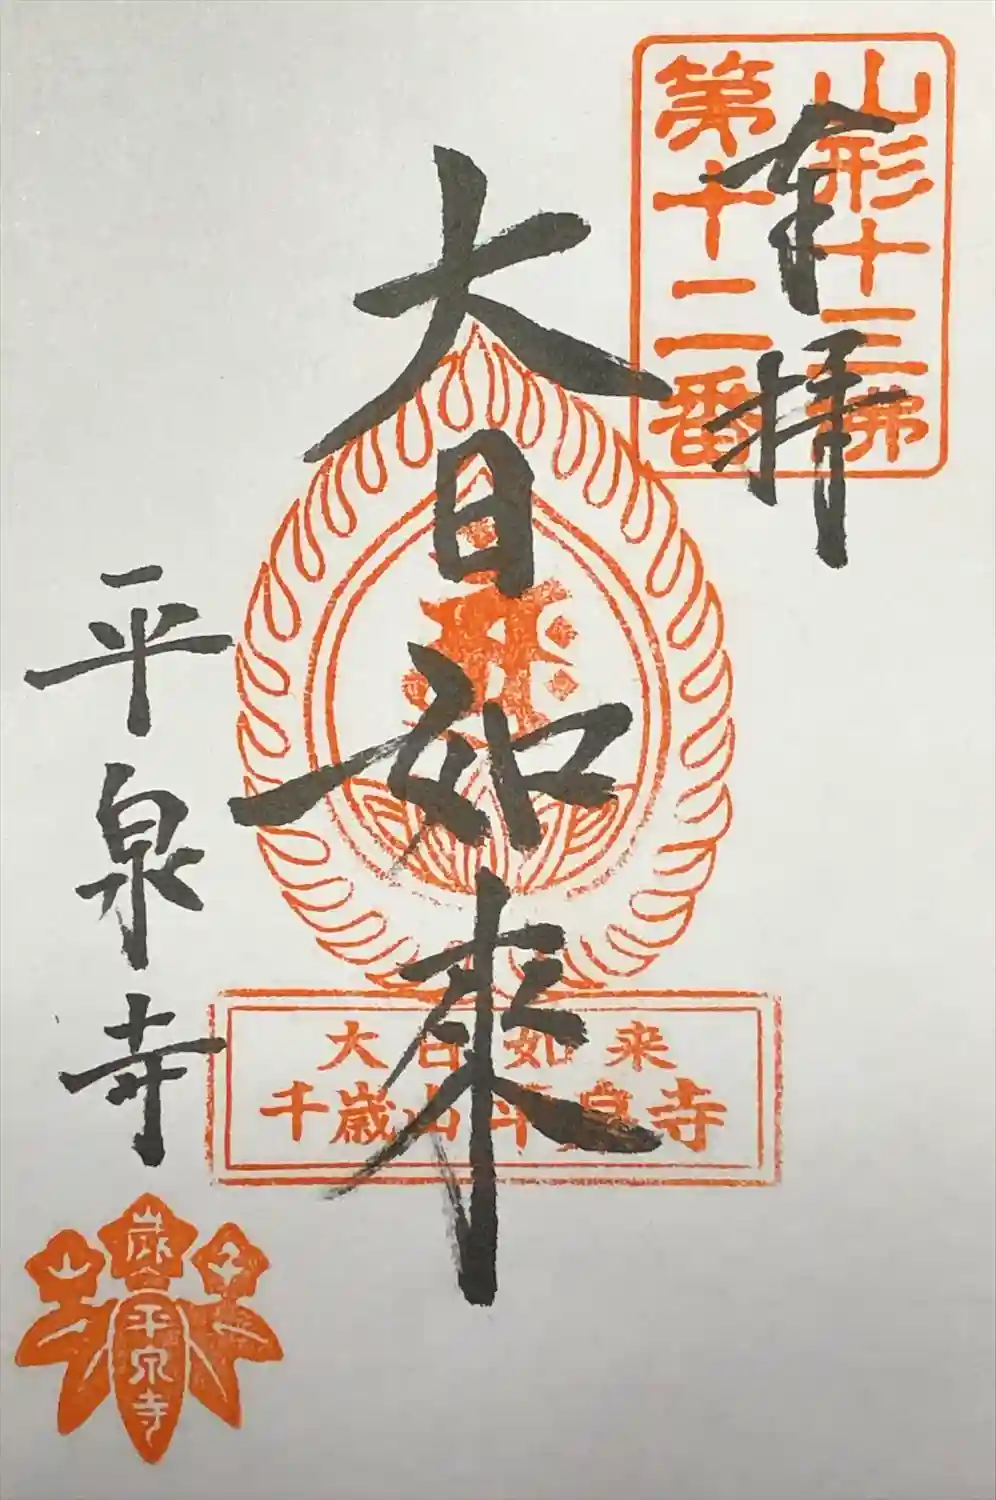 山形十三佛
第十二番
奉拝
大日如来
大日如来
千歳山平泉寺
平泉寺
千
歳
山
平泉寺